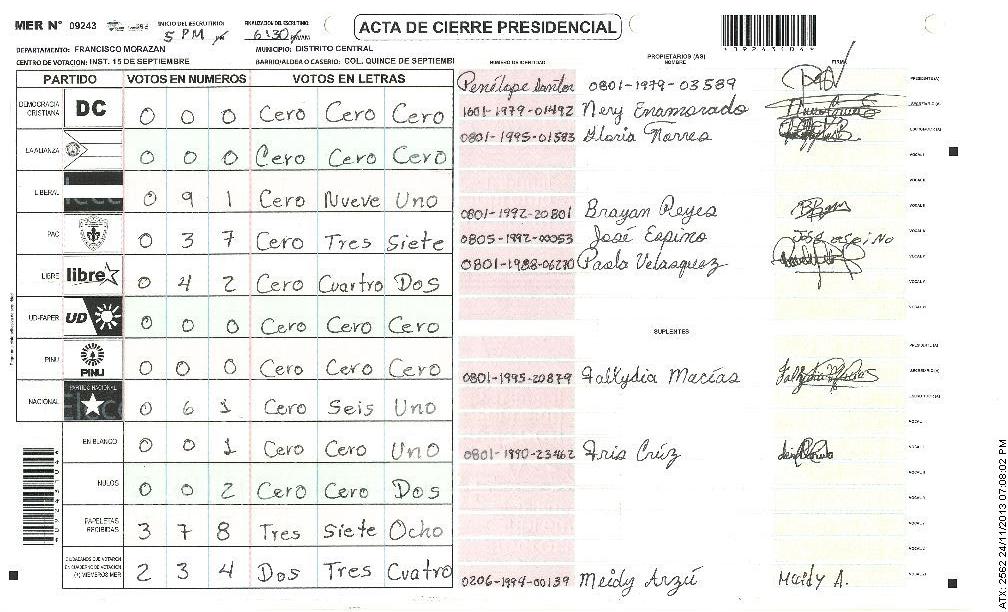 MER N° 09243 INICIO DEL ESCRUTINIO: 5 PM FINALIZACION DEL ESCRUTINIO: 6:30 ACTA DE CIERRE PRESIDENCIAL
DEPARTAMENTO: FRANCISCO MORAZAN MUNICIPIO: DISTRITO CENTRAL
CENTRO DE VOTACION: INST. 15 DE SEPTIEMBRE BARRIO/ALDEA O CASERIO: COL. QUINCE DE SEPTIEMBI
NUMERO DE IDENTIDAD PROPIETARIOS (AS) NOMBRE FIRMA
PARTIDO VOTOS EN NUMEROS VOTOS EN LETRAS
Penélope Santos 0801-1979-03589 PRESIDENTE(A)
DEMOCRACIA CRISTIANA DC 0 0 0 Cero Cero Cero
1601-1979-01492 Nery Enamorado SECRETARIO(A)
0801-1995-01583 Gloria Torres
LA ALIANZA 0 0 0 Cero Cero Cero
LIBERAL 0 9 1 Cero Nueve Uno
0801-1992-20801 Brayan Reyes
PAC 0 3 7 Cero Tres Siete
0805-1992-00053 José Espino
0801-1988-06270 Paola Velasquez
LIBRE libre 0 4 2 Cero Cuatro Dos
UD-FAPER UD 0 0 0 Cero Cero Cero
SUPLENTES
PINU PINU 0 0 0 Cero Cero Cero
0801-1995-20879 Fallydia Macías
NACIONAL PARTIDO NACIONAL 0 6 1 Cero Seis Uno
EN BLANCO 0 0 1 Cero Cero Uno
0801-1990-23462 Iris Crúz
NULOS 0 0 2 Cero Cero Dos
PAPELETAS RECIBIDAS 3 7 8 Tres Siete Ocho
CIUDADANOS QUE VOTARON EN CUADERNO DE VOTACION (+) MIEMBROS MER 2 3 4 Dos Tres Cuatro
0206-1994-00139 Meidy Arzú Meidy A.
ATX 2562 24/11/2013 07:08:02 PM